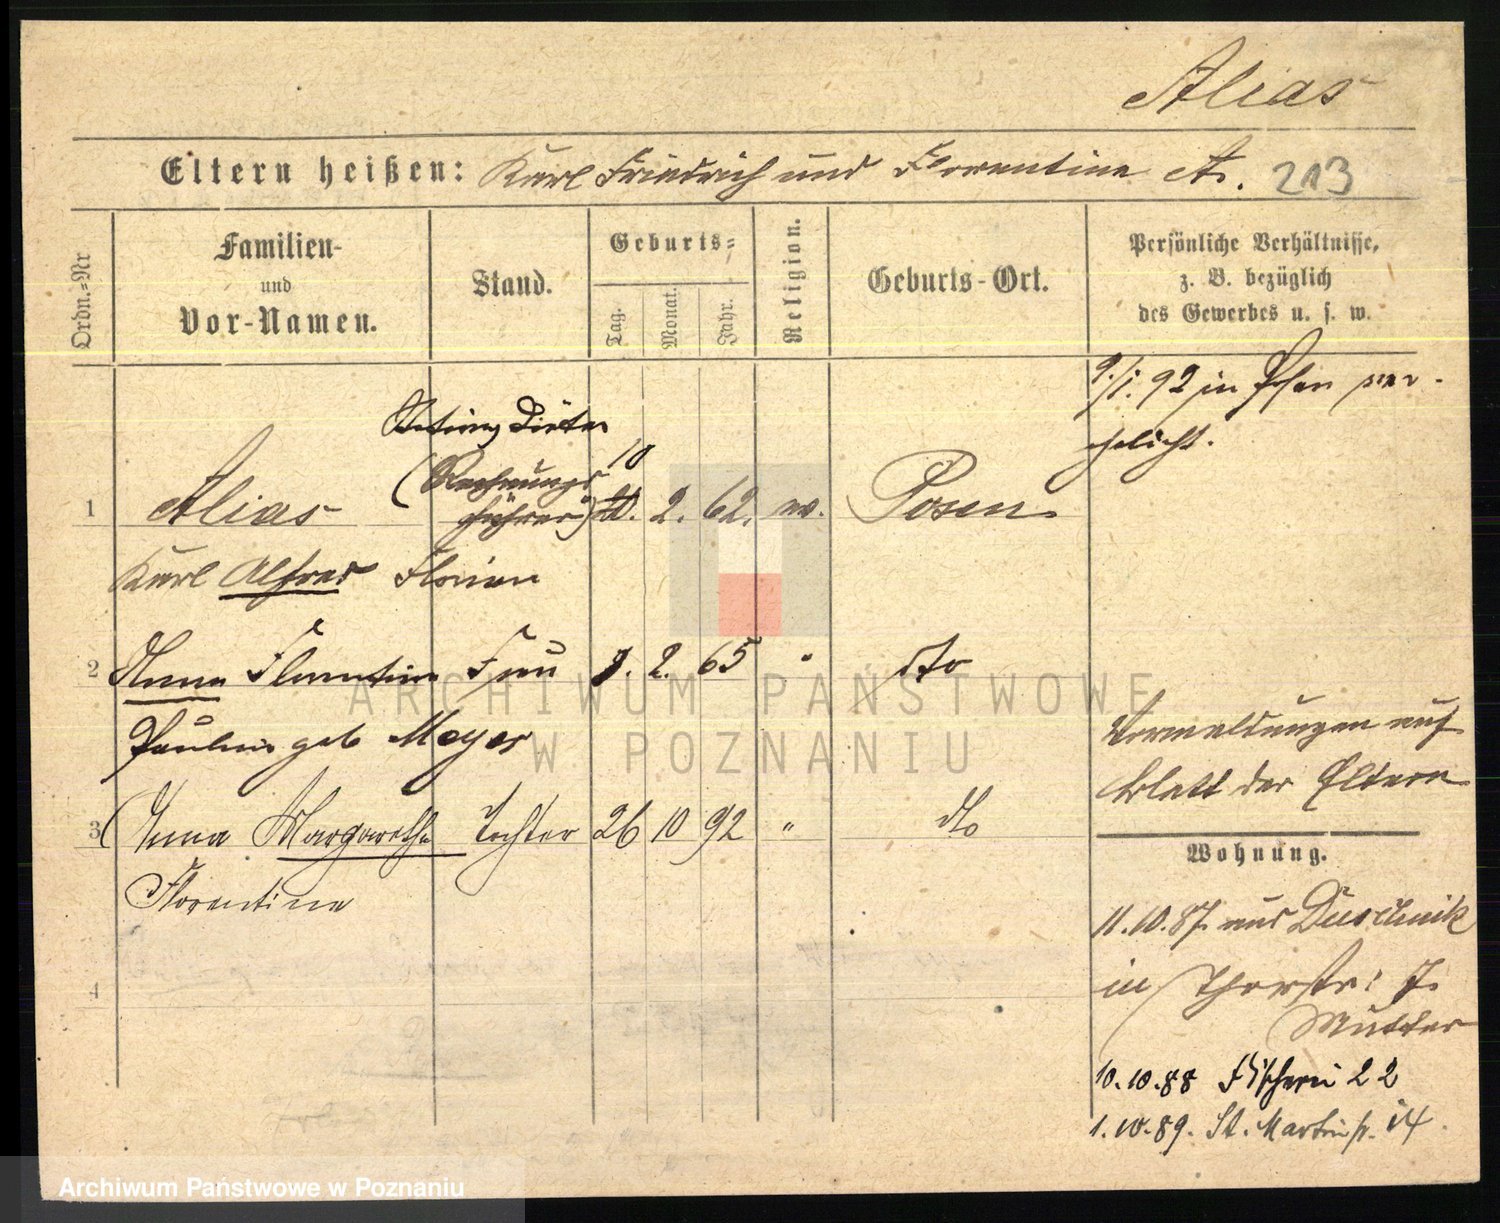 Alias
Eltern heißen: Karl Friedrich und Florentine A. 213
Ordn.=Nr
Familien-
und
Vor-Namen.
Stand.
Geburts=
Tag.
Monat.
Jahr.
Religion.
Geburts-Ort.
Persönliche Verhältnisse,
z. B. bezüglich
des Gewerbes u. s. w.
9./1. 92 in Posen ver-
ehelicht.
Diätar
(Rechnungs 10
1 Alias führer) 2. 62. ev. Posen
Karl Alfred Florian
2 Anna Florentine Frau 7. 2. 65 " dto
Pauline geb Meyer
3 (Anna Margarethe Tochter 26 10 92 " dto
Florentine
4
Vormeldungen auf
blatt der Eltern
Wohnung.
11.10.87. aus Duschnik
in Thorstr: 7.
Mutter
10.10.88 Fischerei 22
1.10.89. St. Martinstr. 14.
ARCHIWUM PAŃSTWOWE
W POZNANIU
Archiwum Państwowe w Poznaniu